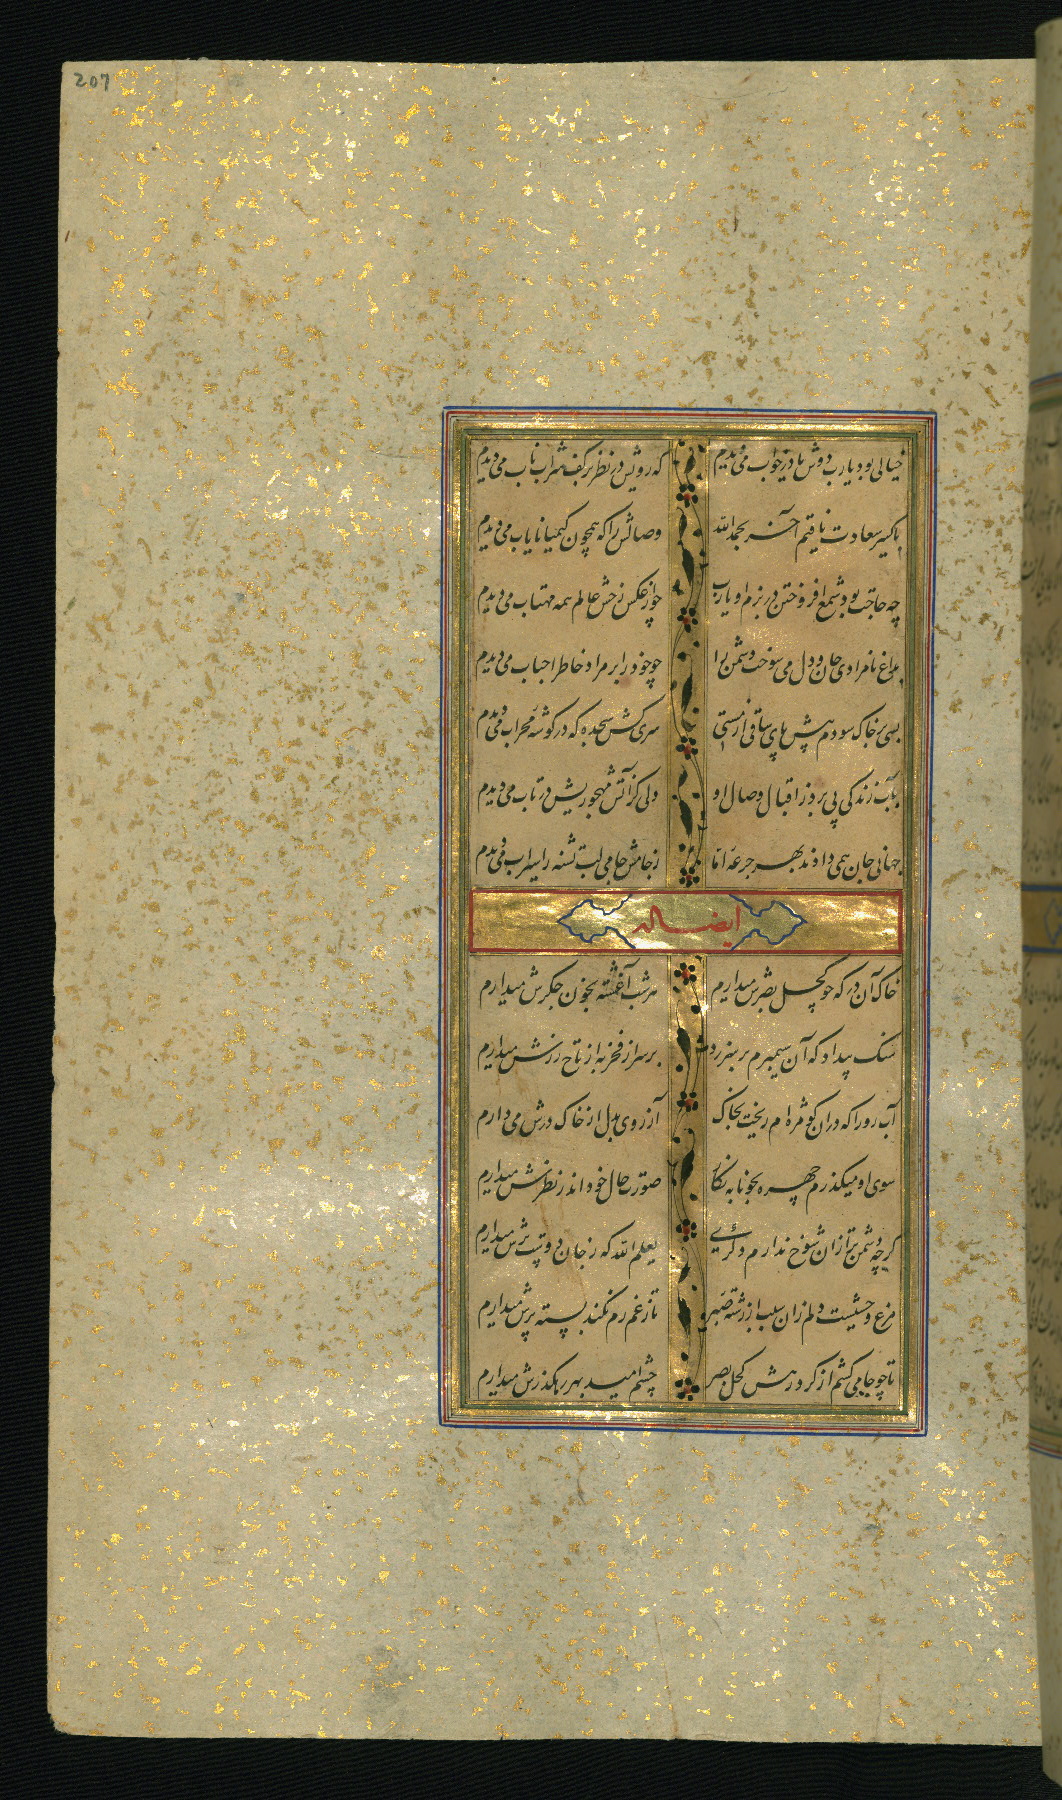 207
خیالی بود یارب دوش یا در خواب می‌دیدم
که رویش در نظر بر کف شراب ناب می‌دیدم
باکسیر سعادت یافتم آخر بحمدالله
وصالش را که همچون کیمیا نایاب می‌دیدم
چه حاجت بود شمع افروختن در بزم او یارب
چو از عکس رخش عالم همه مهتاب می‌دیدم
بداغ نامرادی جان و دل می‌سوخت دشمن را
چو خود را بر مراد خاطر احباب می‌دیدم
بسی بر خاک سودم پیش پای ساقی از مستی
سری کش سجده که در گوشه محراب می‌دیدم
بآب زندگی پی برد ز اقبال وصال او
دلی کز آتش مهجوریش در تاب می‌دیدم
جهانی جان همی دادند بهر جرعه اما
ز جامش جامی لب تشنه را سیراب می‌دیدم
ایضا له
خاک آن در که چو کحل بصرش میدارم
هر شب آغشته بخون جگرش میدارم
سنک بیداد که آن سیمبرم بر سر زد
بر سر از فخر به از تاج زرش میدارم
آب رو را که در آن کو مژه‌ام ریخت بخاک
آرزوی بدل از خاک درش می‌دارم
سوی او میگذرم چهره بخونابه نکار
صورت حال خود اندر نظرش میدارم
گرچه دشمن‌تر از آن شوخ ندارم دگری
یعلم الله که ز جان دوست ترش میدارم
مرغ وحشیست دلم زان سبب از رشته صبر
تا ز غم رم نکند بسته پرش میدارم
تا چو جامی کشم از گرد رهش کحل بصر
چشم امید بهر رهگذرش میدارم